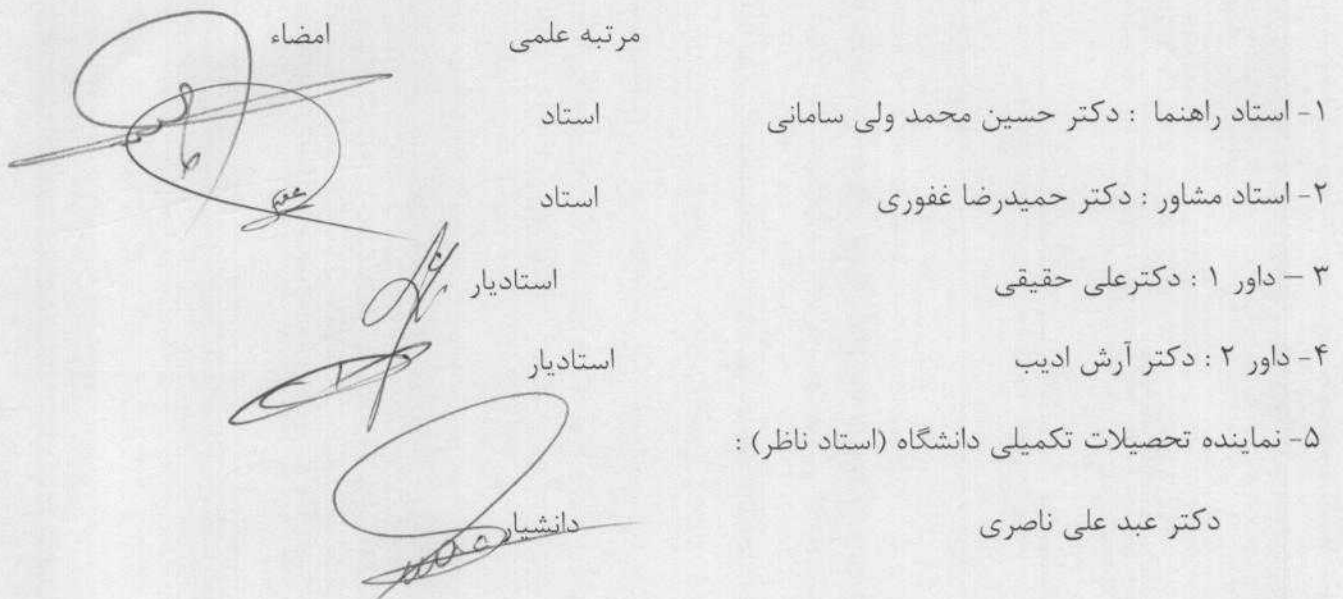 مرتبه علمی امضاء
۱- استاد راهنما : دکتر حسین محمد ولی سامانی استاد
۲- استاد مشاور : دکتر حمیدرضا غفوری استاد
۳ – داور ۱ : دکترعلی حقیقی استادیار
۴- داور ۲ : دکتر آرش ادیب استادیار
۵- نماینده تحصیلات تکمیلی دانشگاه (استاد ناظر) :
دکتر عبد علی ناصری دانشیار